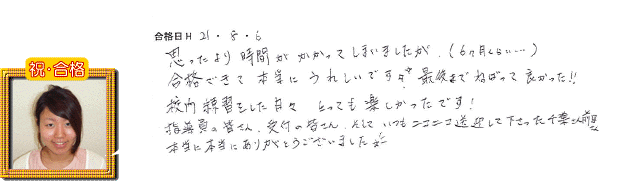 合格日 H 21・8・6
思ったより時間がかかってしまいましたが、(6ヶ月くらい…)
合格できて本当にうれしいです 最後までねばって良かった!!
校内練習をした日々 とっても楽しかったです!
指導員の皆さん、受付の皆さん、そして いつもニコニコ送迎して下さった千葉さん
本当に本当にありがとうございました
祝・合格